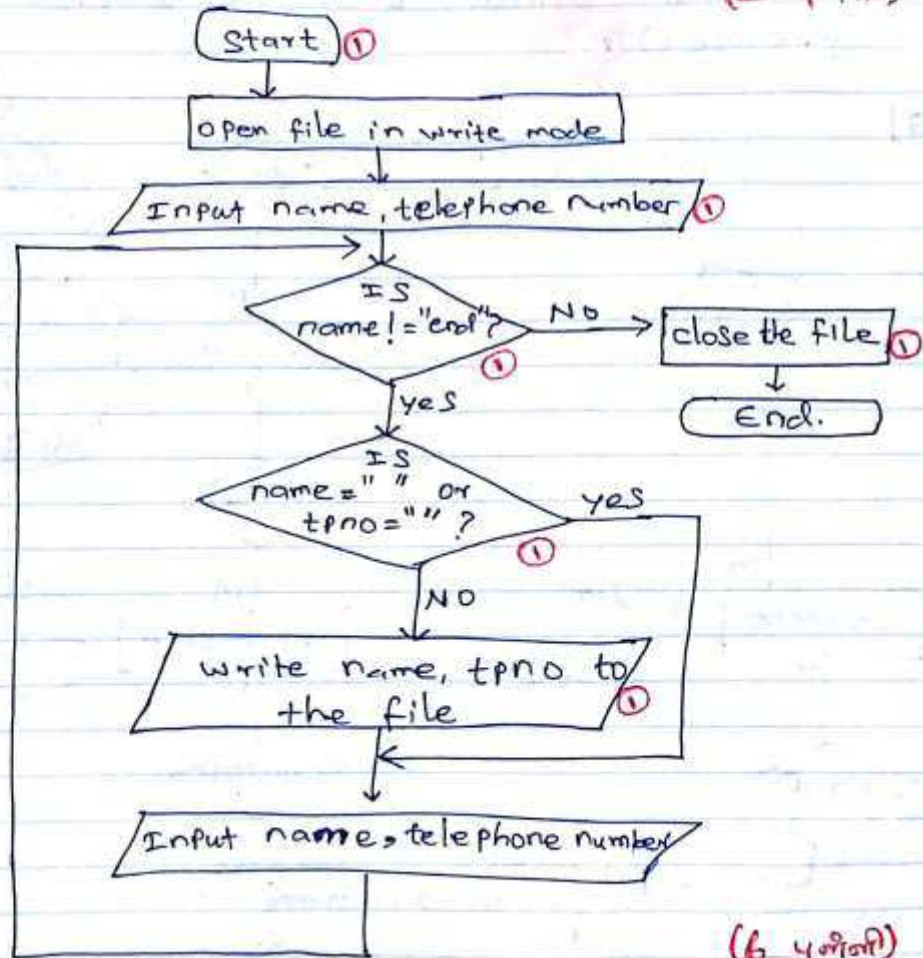 Start ①
open file in write mode
Input name, telephone number ①
IS
name! = "end"? ①
No
close the file ①
End.
yes
IS
name = " " or
tpno = "" ? ①
yes
NO
write name, tpno to
the file ①
Input name, telephone number
(6 புள்ளி)